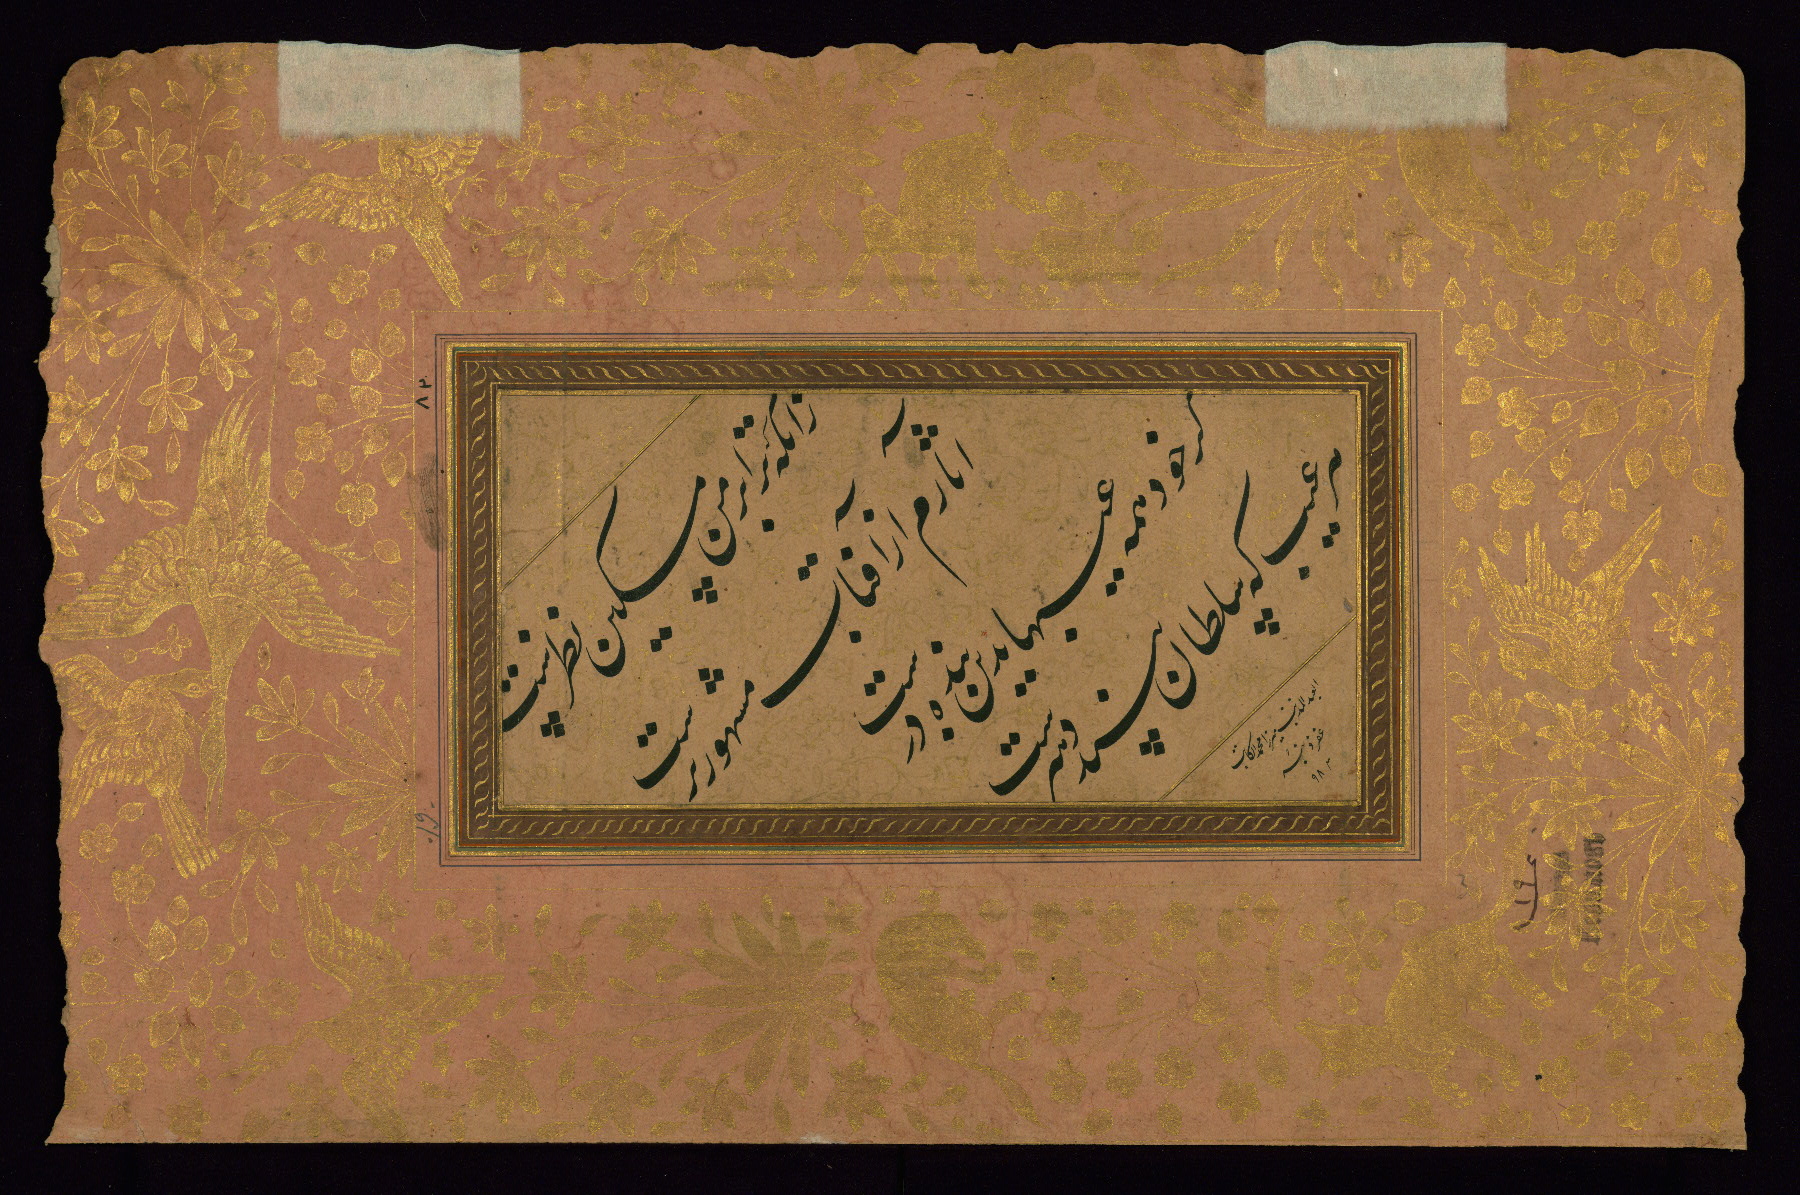 زانکه ترا بر من مسکین نظریست
آثارم از آفتاب مشهورترست
گر خود همه عیبها بدین بنده درست
هر عیب که سلطان بپسندد هنرست
العبد المذنب میرزا محمد الکاتب
غفر ذنوبه
۹۸۲
۸۲